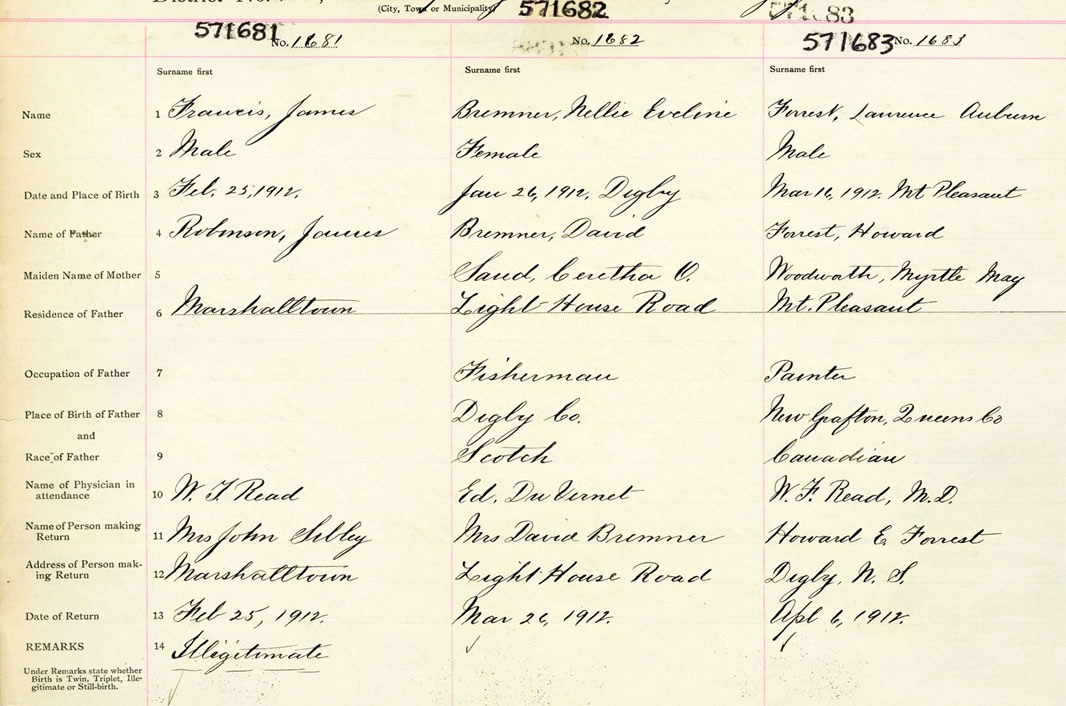 (City, Town or Municipality)
571681 No. 1681
571682 No. 1682
571683 No. 1683
Surname first Surname first Surname first
Name 1 Francis, James Bremner, Nellie Eveline Forrest, Laurence Auburn
Sex 2 Male Female Male
Date and Place of Birth 3 Feb. 25, 1912. Jan 26, 1912, Digby Mar 16, 1912. Mt Pleasant
Name of Father 4 Robinson, James Bremner, David Forrest, Howard
Maiden Name of Mother 5 Saud, Ceretha O. Woodworth, Myrtle May
Residence of Father 6 Marshalltown Light House Road Mt. Pleasant
Occupation of Father 7 Fisherman Painter
Place of Birth of Father 8 Digby Co. New Grafton, Queens Co
and
Race of Father 9 Scotch Canadian
Name of Physician in
attendance 10 W. F Read Ed. DuVernet W. F. Read, M.D.
Name of Person making
Return 11 Mrs John Sibley Mrs David Bremner Howard E. Forrest
Address of Person mak-
ing Return 12 Marshalltown Light House Road Digby, N. S.
Date of Return 13 Feb 25, 1912. Mar 26, 1912. Apl 6, 1912.
REMARKS 14 Illigitimate
Under Remarks state whether
Birth is Twin, Triplet, Ille-
gitimate or Still-birth.